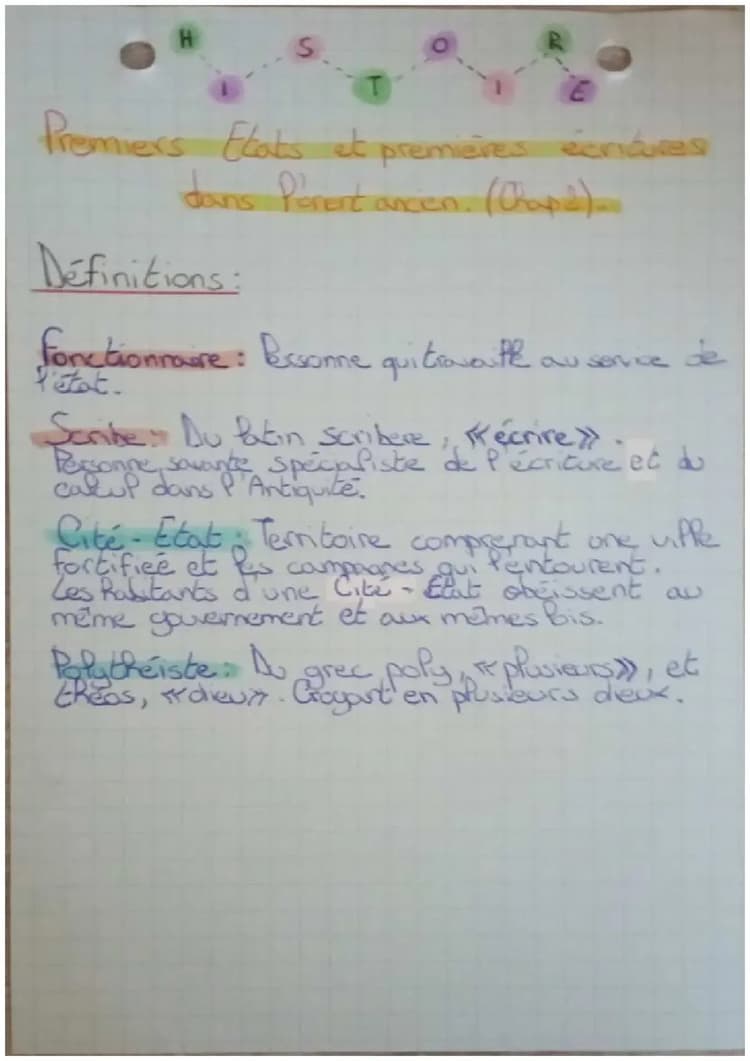 HISTOIRE
Premiers États et premières écritures
dans l'orient ancien. (Chap2).
Définitions :
Fonctionnaire : Personne qui travaille au service de
l'état.
Scribe : Du latin scribere, « écrire ».
Personne savante spécialiste de l'écriture et du
calcul dans l'Antiquité.
Cité-État : Territoire comprenant une ville
fortifieé et les campagnes qui l'entourent.
Les habitants d'une Cité-État obéissent au
même gouvernement et aux mêmes lois.
Polythéiste : Du grec poly, « plusieurs », et
théos, « dieu ». Croyant en plusieurs dieux.